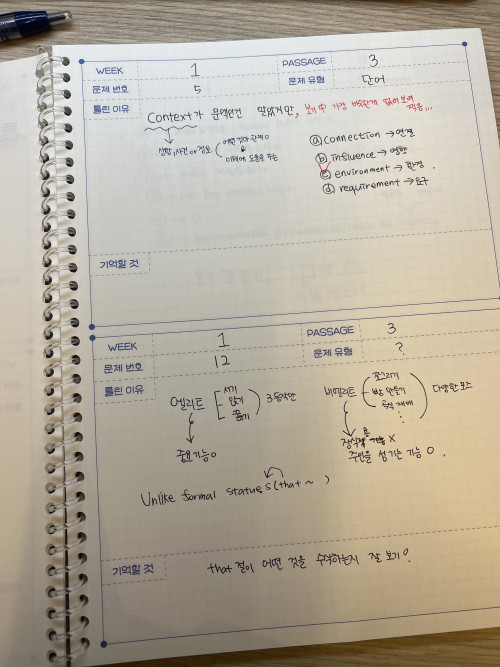 WEEK 1 PASSAGE 3
문제 번호 5 문제 유형 단어
틀린 이유
Context가 문맥인건 알았지만, 보기 中 가장 비슷한게 없어 보여
상황, 사건 or 정보
어떤 것과 관계 O
이해에 도움을 주는
ⓐ connection → 연결
ⓑ influence → 영향
ⓒ environment → 환경.
ⓓ requirement → 요구
기억할 것
WEEK 1 PASSAGE 3
문제 번호 12 문제 유형 ?
틀린 이유
엘리트
서기
앉기
꿇기
3동작만
종교기능 O
비엘리트
쪼그리기
빵 만들기
다양한 포즈
장식적 기능 X
주인을 섬기는 기능 O.
Unlike formal statues (that ~ )
기억할 것 that 절이 어떤 것을 수식하는지 잘 보기!